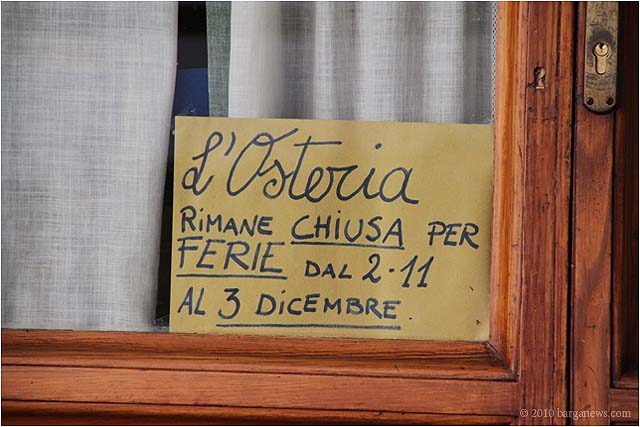 L'Osteria
RIMANE CHIUSA PER
FERIE DAL 2-11
AL 3 DICEMBRE.
© 2010 barganews.com